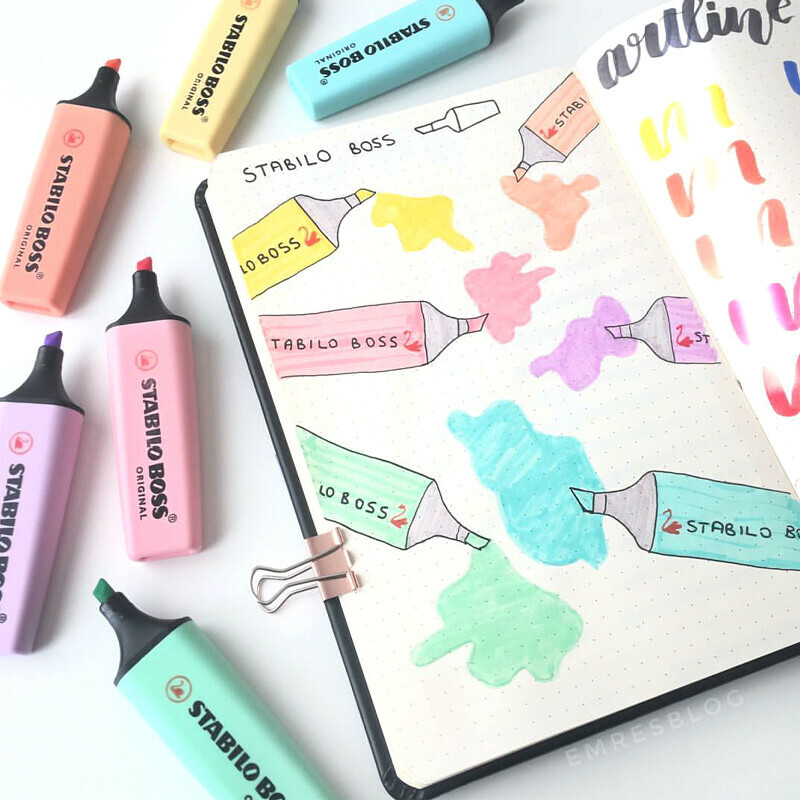 STABILO BOSS
ORIGINAL
STABILO BOSS
ORIGINAL
STABILO BOSS®
ORIGINAL
STABILO BOSS®
ORIGINAL
STABILO BOSS
STABILO BOSS®
STABILO BOSS
STABILO BOSS
STABI
LO BOSS
TABILO BOSS
ST
LO BOSS
STABILO B
artline
EMRESBLOG